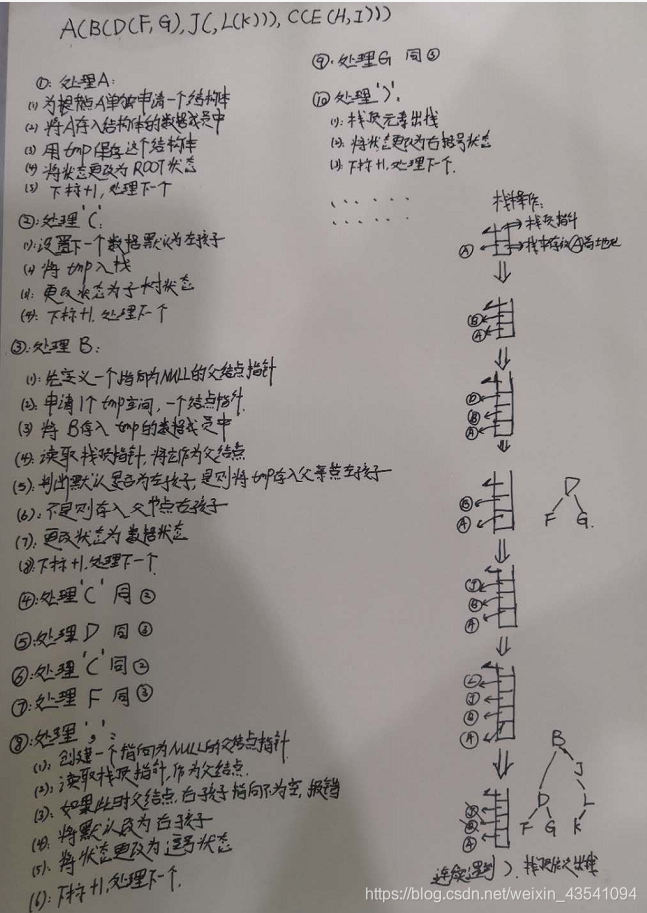 A(B(D(F,G),J(,L(K))),C(E(H,I)))
①: 处理A:
(1) 为根节点A单独申请一个结构体
(2) 将A存入结构体的数据成员中
(3) 用tmp保存这个结构体
(4) 将状态更改为ROOT状态
(5) 下标+1,处理下一个
②:处理'(':
(1):设置下一个数据默认为左孩子
(2) 将tmp入栈
(3): 更改状态为子树状态
(4): 下标+1,处理下一个
③:处理B:
(1):先定义一个指向为NULL的父结点指针
(2): 申请1个tmp空间,一个结点指针.
(3) 将B存入tmp的数据成员中
(4): 读取栈顶指针,将它作为父结点
(5): 判断默认是否为左孩子,是则将tmp存入父节点左孩子
(6): 不是则存入父节点右孩子
(7): 更改状态为数据状态
(8):下标+1,处理下一个
④:处理'('同②
⑤:处理D同③
⑥:处理'('同②
⑦:处理F同③
⑧:处理',':
(1): 创建一个指向为NULL的父结点指针
(2): 读取栈顶指针,作为父结点.
(3): 如果此时父结点右孩子指向不为空,报错
(4): 将默认改为右孩子
(5): 将状态更改为逗号状态
(6): 下标+1,处理下一个.
⑨.处理G同③
⑩处理')':
(1): 栈顶元素出栈
(2): 将状态更改为右括号状态
(3): 下标+1,处理下一个.
......
......
栈操作:
栈顶指针
Ⓐ 栈中存放Ⓐ的地址
Ⓑ
Ⓐ
Ⓓ
Ⓑ
Ⓐ
Ⓑ
Ⓐ
D
F G
Ⓙ
Ⓑ
Ⓐ
Ⓛ
Ⓙ
Ⓑ
Ⓐ
Ⓙ
Ⓑ
Ⓐ
B
J
D L
F G K
连续遇到),栈顶依次出栈
https://blog.csdn.net/weixin_43541094